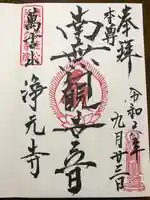 奉拝
本尊
令和六年
九月廿三日
南無観世音
萬吉山
浄元寺